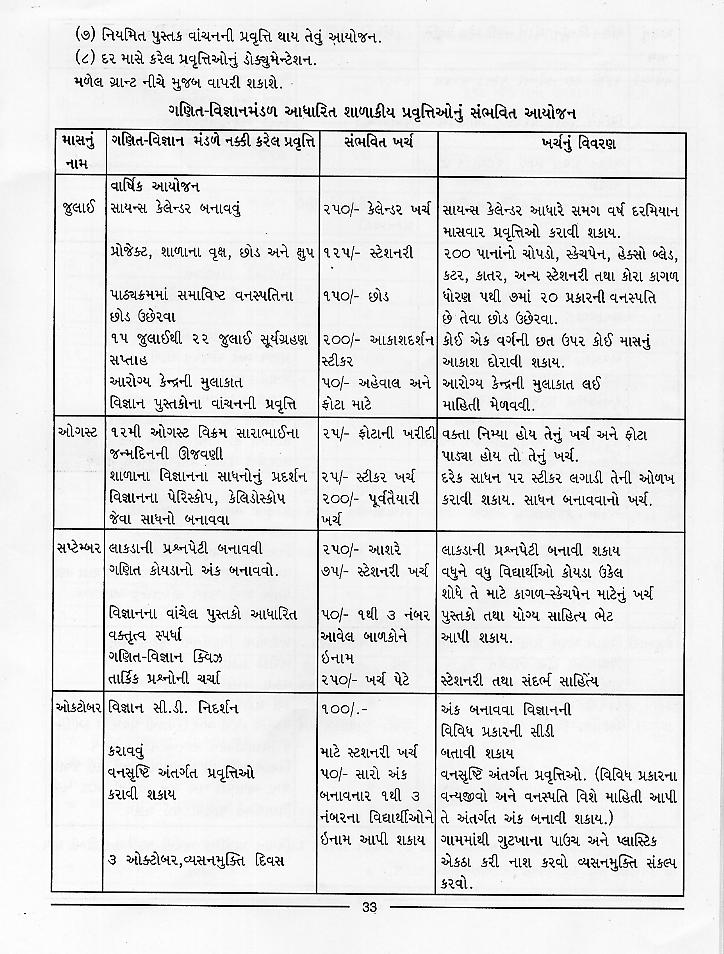 (૭) નિયમિત પુસ્તક વાંચનની પ્રવૃત્તિ થાય તેવું આયોજન.
(૮) દર માસે કરેલ પ્રવૃત્તિઓનું ડોક્યુમેન્ટેશન.
મળેલ ગ્રાન્ટ નીચે મુજબ વાપરી શકાશે.
ગણિત-વિજ્ઞાનમંડળ આધારિત શાળાકીય પ્રવૃત્તિઓનું સંભવિત આયોજન
માસનું ગણિત-વિજ્ઞાન મંડળે નક્કી કરેલ પ્રવૃત્તિ સંભવિત ખર્ચ ખર્ચનું વિવરણ
નામ
વાર્ષિક આયોજન
જુલાઈ સાયન્સ કેલેન્ડર બનાવવું ૨૫૦/- કેલેન્ડર ખર્ચ સાયન્સ કેલેન્ડર આધારે સમગ વર્ષ દરમિયાન
માસવાર પ્રવૃત્તિઓ કરાવી શકાય.
પ્રોજેક્ટ, શાળાના વૃક્ષ, છોડ અને ક્ષુપ ૧૨૫/- સ્ટેશનરી ૨૦૦ પાનાંનો ચોપડો, સ્કેચપેન, હેક્સો બ્લેડ,
કટર, કાતર, અન્ય સ્ટેશનરી તથા કોરા કાગળ
પાઠ્યક્રમમાં સમાવિષ્ટ વનસ્પતિના ૧૫૦/- છોડ ધોરણ ૫થી ૭માં ૨૦ પ્રકારની વનસ્પતિ
છોડ ઉછેરવા છે તેવા છોડ ઉછેરવા.
૧૫ જુલાઈથી ૨૨ જુલાઈ સૂર્યગ્રહણ ૨૦૦/- આકાશદર્શન કોઈ એક વર્ગની છત ઉપર કોઈ માસનું
સપ્તાહ સ્ટીકર આકાશ દોરાવી શકાય.
આરોગ્ય કેન્દ્રની મુલાકાત ૫૦/- અહેવાલ અને આરોગ્ય કેન્દ્રની મુલાકાત લઈ
વિજ્ઞાન પુસ્તકોના વાંચનની પ્રવૃત્તિ ફોટા માટે માહિતી મેળવવી.
ઓગસ્ટ ૧૨મી ઓગસ્ટ વિક્રમ સારાભાઈના ૨૫/- ફોટાની ખરીદી વક્તા નિમ્યા હોય તેનું ખર્ચ અને ફોટા
જન્મદિનની ઊજવણી પાડ્યા હોય તો તેનું ખર્ચ.
શાળાના વિજ્ઞાનના સાધનોનું પ્રદર્શન ૨૫/- સ્ટીકર ખર્ચ દરેક સાધન પર સ્ટીકર લગાડી તેની ઓળખ
વિજ્ઞાનના પેરિસ્કોપ, કેલિડોસ્કોપ ૨૦૦/- પૂર્વતૈયારી કરાવી શકાય. સાધન બનાવવાનો ખર્ચ.
જેવા સાધનો બનાવવા ખર્ચ
સપ્ટેમ્બર લાકડાની પ્રશ્નપેટી બનાવવી ૨૫૦/- આશરે લાકડાની પ્રશ્નપેટી બનાવી શકાય
ગણિત કોયડાનો અંક બનાવવો. ૭૫/- સ્ટેશનરી ખર્ચ વધુને વધુ વિદ્યાર્થીઓ કોયડા ઉકેલ
શોધે તે માટે કાગળ-સ્કેચપેન માટેનું ખર્ચ
વિજ્ઞાનના વાંચેલ પુસ્તકો આધારિત ૫૦/- ૧થી ૩ નંબર પુસ્તકો તથા યોગ્ય સાહિત્ય ભેટ
વક્તૃત્વ સ્પર્ધા આવેલ બાળકોને આપી શકાય.
ગણિત-વિજ્ઞાન ક્વિઝ ઇનામ
તાર્કિક પ્રશ્નોની ચર્ચા ૨૫૦/- ખર્ચ પેટે સ્ટેશનરી તથા સંદર્ભ સાહિત્ય
ઓકટોબર વિજ્ઞાન સી.ડી. નિદર્શન ૧૦૦/.- અંક બનાવવા વિજ્ઞાનની
વિવિધ પ્રકારની સીડી
કરાવવું માટે સ્ટશનરી ખર્ચ બતાવી શકાય
વનસૃષ્ટિ અંતર્ગત પ્રવૃત્તિઓ ૫૦/- સારો અંક વનસૃષ્ટિ અંતર્ગત પ્રવૃત્તિઓ. (વિવિધ પ્રકારના
કરાવી શકાય બનાવનાર ૧થી ૩ વન્યજીવો અને વનસ્પતિ વિશે માહિતી આપી
નંબરના વિદ્યાર્થીઓને તે અંતર્ગત અંક બનાવી શકાય.)
ઇનામ આપી શકાય ગામમાંથી ગુટખાના પાઉચ અને પ્લાસ્ટિક
૩ ઓક્ટોબર,વ્યસનમુક્તિ દિવસ એકઠા કરી નાશ કરવો વ્યસનમુક્તિ સંકલ્પ
કરવો.
33